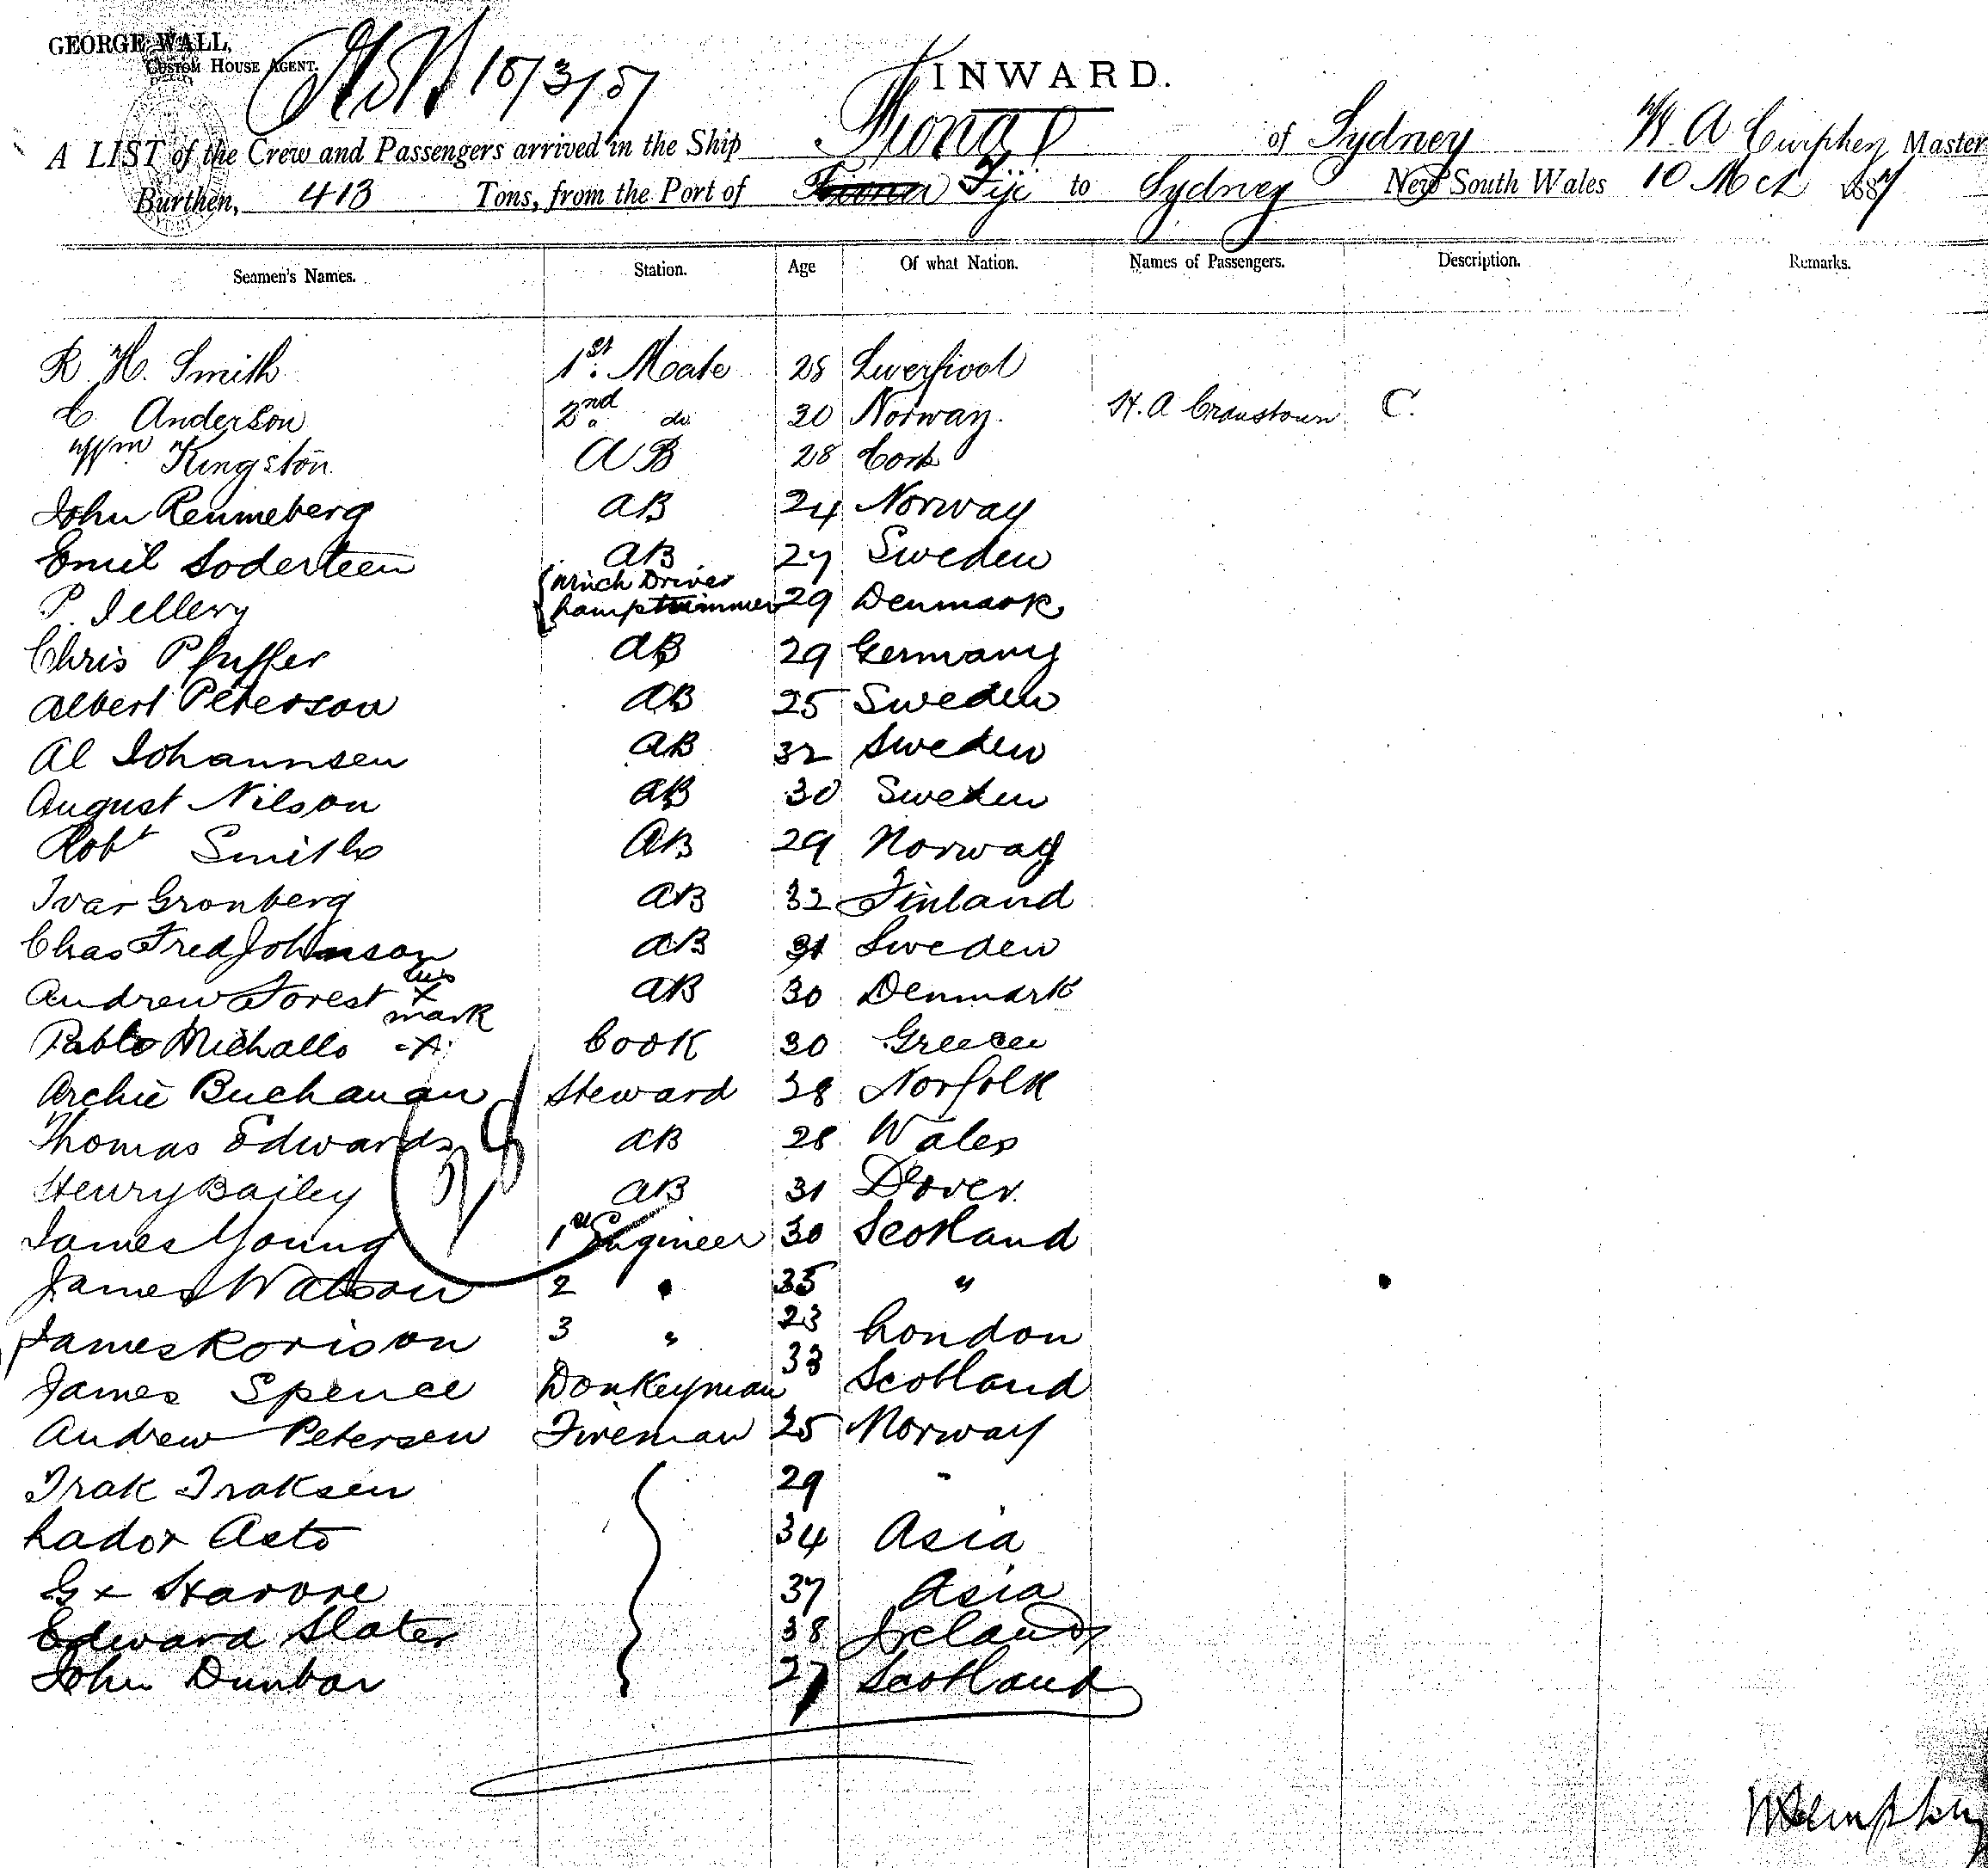 GEORGE WALL,
CUSTOM HOUSE AGENT.
INWARD.
A LIST of the Crew and Passengers arrived in the Ship Fiona of Sydney W A Curphey Master
Burthen, 413 Tons, from the Port of Fiona Fiji to Sydney New South Wales 10 Mch 1887
Seamen's Names. Station. Age Of what Nation. Names of Passengers. Description. Remarks.
R. H. Smith 1st. Mate 28 Liverpool
C Anderson 2nd. do 30 Norway. H. A Cranstown C.
Wm Kingston AB 28 Cork
John Rennneberg AB 24 Norway
Emil Soderteen AB 27 Sweden
P. Jellery { Winch Driver Lamptrimmer 29 Denmark
Chris Pfuffer AB 29 Germany
Albert Peterson AB 25 Sweden
Al Johannsen AB 32 Sweden
August Nilson AB 30 Sweden
Robt Smith AB 29 Norway
Ivar Gronberg AB 32 Finland
Chas Fred Johnson AB 31 Sweden
Andrew Forest his x mark AB 30 Denmark
Pablo Michallo -x- Cook 30 Greece
Archie Buchanan Steward 38 Norfolk
Thomas Edwards AB 28 Wales
Henry Bailey AB 31 Dover
James Young 1st Engineer 30 Scotland
James Watson 2 " 35 "
James Rorison 3 " 23 London
James Spence Donkeyman 33 Scotland
Andrew Petersen Fireman 25 Norway
Irak Iraksen 29 "
Lador Asto 34 Asia
G x Harore 37 Asia
Edward Slater 38 Ireland
John Dunbar 27 Scotland
28